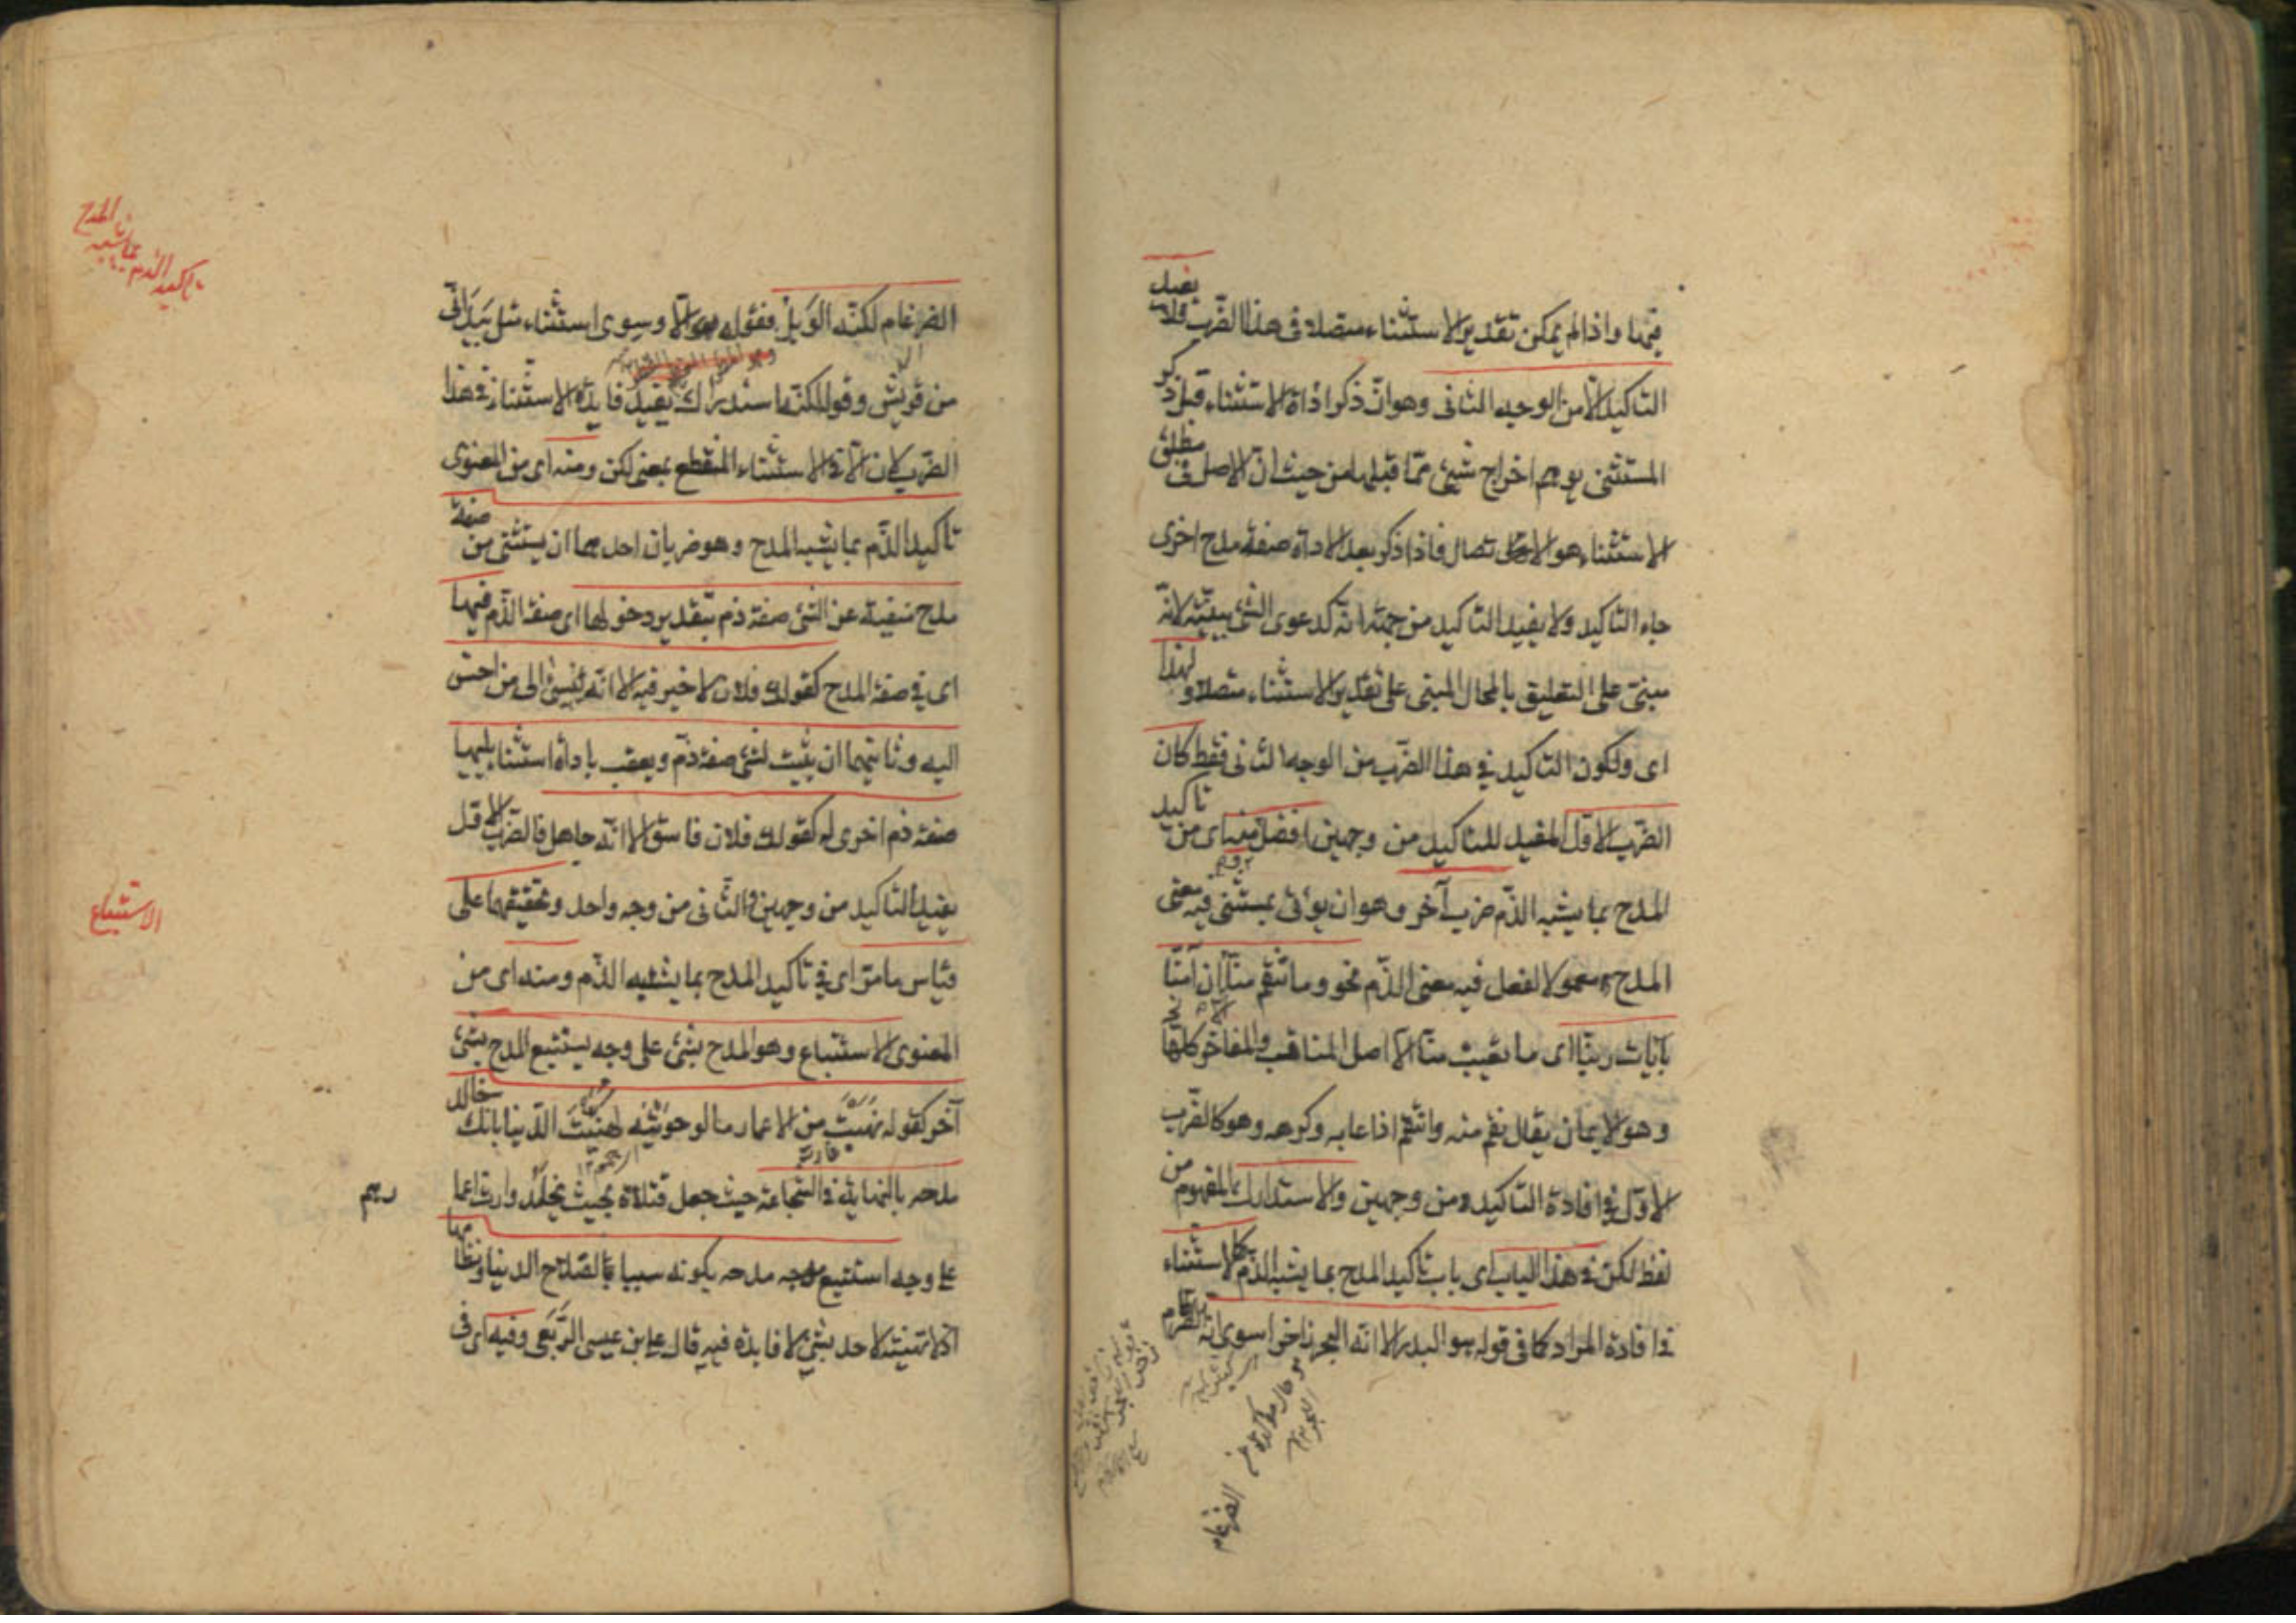 فيها واذا لم يمكن تقدير الاستثناء متصلا فى هذا الضرب فلا يفيد
التاكيد الا من الوجه الثانى وهو ان ذكر اداة الاستثناء قبل ذكر
المستثنى يوهم اخراج شيئ مما قبلها من حيث ان الاصل فى مطلق
الاستثناء هو الاتصال فاذا ذكر بعد الاداة صفة مدح اخرى
جاء التاكيد ولا يفيد التاكيد من جهة انه كدعوى الشئ ببينة لانه
مبنى على التعليق بالمحال المبنى على تقدير الاستثناء متصلا ولهذا
اى ولكون التاكيد فى هذا الضرب من الوجه الثانى فقط كان
الضرب الاول المفيد للتاكيد من وجهين افضل ومنه اى من تاكيد
المدح بما يشبه الذم ضرب آخر وهو ان يؤتى بمستثنى فيه معنى
المدح معمولا لفعل فيه معنى الذم نحو وما تنقم منا الا ان آمنا
بآيات ربنا اى ما تعيب منا الا اصل المناقب والمفاخر كلها
وهو الايمان يقال نقم منه وانتقم اذا عابه وكرهه وهو كالضرب
الاول فى افادة التاكيد من وجهين والاستدراك المفهوم من
لفظ لكن فى هذا الباب اى باب تاكيد المدح بما يشبه الذم كالاستثناء
فى افادة المراد كما فى قوله هو البدر الا انه البحر زاخرا سوى انه الضرغام
الضرغام
الضرغام لكنه الوبل فقوله الا وسوى استثناء مثل بيد انى
من قريش وقوله لكنه استدراك يفيد فايدة الاستثناء فى هذا
الضرب لان الا فى الاستثناء المنقطع بمعنى لكن ومنه اى من المعنوى
تاكيد الذم بما يشبه المدح وهو ضربان احدهما ان يستثنى من صفة
مدح منفية عن الشئ صفة ذم بتقدير دخولها اى صفة الذم فيها
اى فى صفة المدح كقولك فلان لا خير فيه الا انه يسئ الى من احسن
اليه وثانيهما ان يثبت لشئ صفة ذم ويعقب باداة استثناء يليها
صفة ذم اخرى له كقولك فلان فاسق الا انه جاهل فالضرب الاول
يفيد التاكيد من وجهين والثانى من وجه واحد وتحقيقهما على
قياس ما مر اى فى تاكيد المدح بما يشبه الذم ومنه اى من
المعنوى الاستتباع وهو المدح بشئ على وجه يستتبع المدح بشئ
آخر كقوله نهبت من الاعمار ما لو حويته لهنئت الدنيا بانك خالد
مدحه بالنهاية فى الشجاعة حيث جعل قتلاه بحيث يخلد وارث اعمارهم
على وجه استتبع مدحه بكونه سببا لصلاح الدنيا ونظامها
اذ لا تهنئة لاحد بشئ لا فايدة فيه قال على بن عيسى الربعى وفيه اى فى
تاكيد الذم بما يشبه المدح
الاستتباع